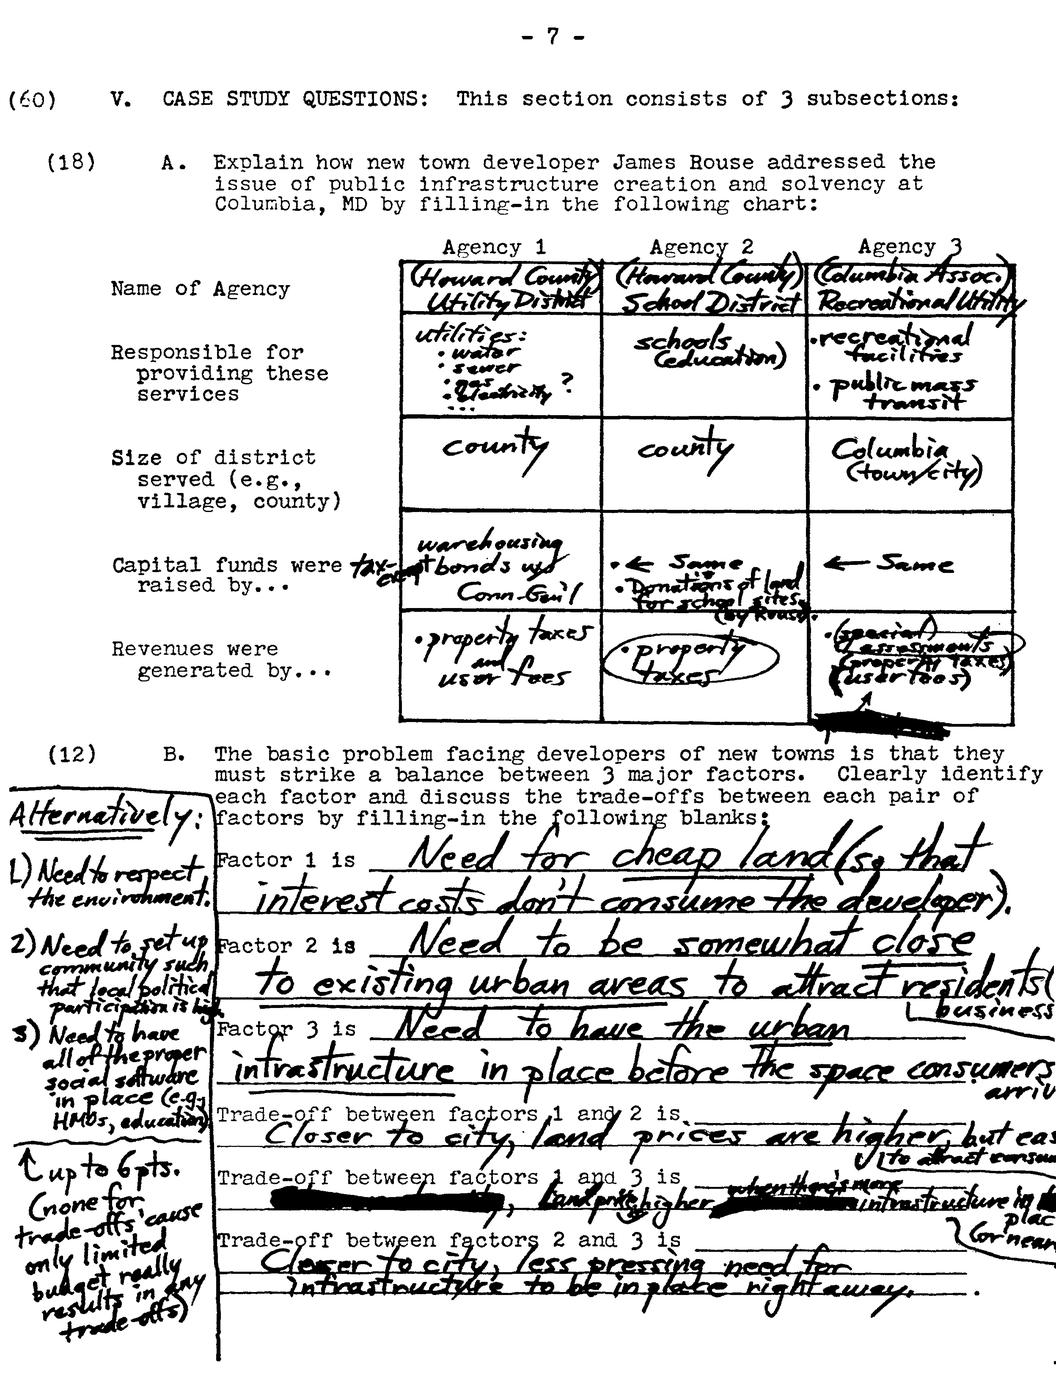 - 7 -
(60) V. CASE STUDY QUESTIONS: This section consists of 3 subsections:
(18) A. Explain how new town developer James Rouse addressed the
issue of public infrastructure creation and solvency at
Columbia, MD by filling-in the following chart:
Agency 1 Agency 2 Agency 3
Name of Agency
(Howard County)
Utility District
(Howard County)
School District
(Columbia Assoc.)
Recreational Utility
Responsible for
providing these
services
utilities:
• water
• sewer
• gas
• electricity ?
...
schools
(education)
• recreational
facilities
• public mass
transit
Size of district
served (e.g.,
village, county)
county
county
Columbia
(town/city)
Capital funds were
raised by...
warehousing
tax-exempt bonds w/
Conn-Gen'l
• ← Same
• Donations of land
for school sites
(by Rouse).
← Same
Revenues were
generated by...
• property taxes
and
user fees
• property
taxes
• (special)
assessments
(property taxes)
(user fees)
(12) B. The basic problem facing developers of new towns is that they
must strike a balance between 3 major factors. Clearly identify
each factor and discuss the trade-offs between each pair of
factors by filling-in the following blanks:
Factor 1 is Need for cheap land (so that
interest costs don't consume the developer).
Factor 2 is Need to be somewhat close
to existing urban areas to attract residents
business
Factor 3 is Need to have the urban
infrastructure in place before the space consumers
Trade-off between factors 1 and 2 is
Closer to city, land prices are higher, but
to attract
Trade-off between factors 1 and 3 is
when there's more
, Land prices higher infrastructure in
(or near
Trade-off between factors 2 and 3 is
Closer to city, less pressing need for
infrastructure to be in place right away.
Alternatively:
1) Need to respect
the environment.
2) Need to set up
community such
that local political
participation is high.
3) Need to have
all of the proper
social software
in place (e.g.,
HMOs, education)
↑ up to 6 pts.
(none for
trade-offs 'cause
only limited
budget really
results in any
trade-offs)